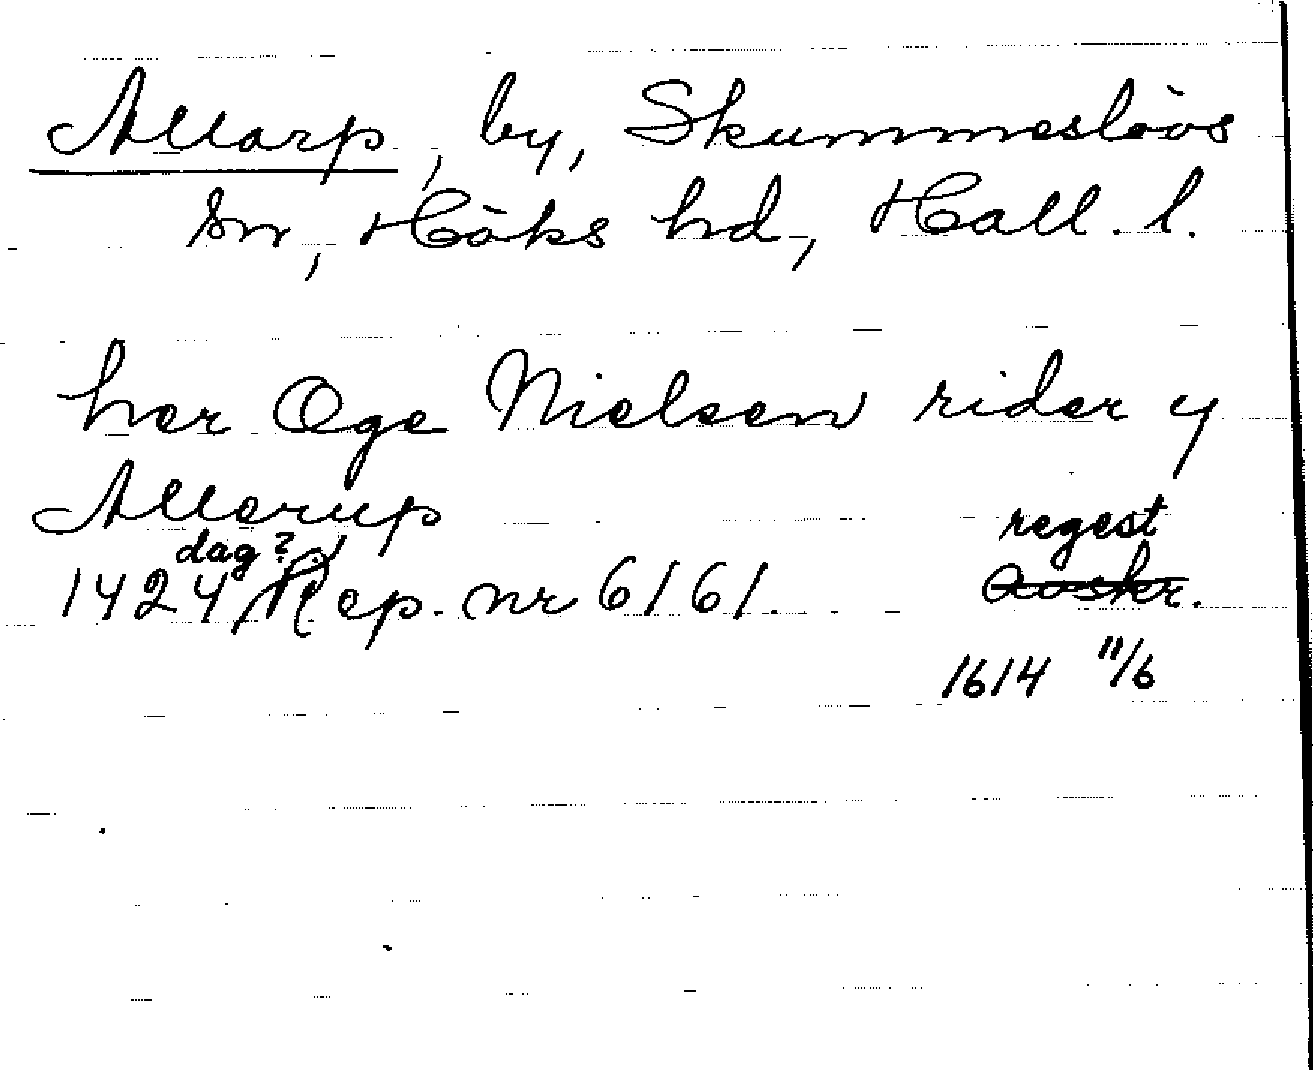 Allarp, by, Skummeslövs
sn, Höks hd, Hall. l.
her Oge Nielsen rider y
Allerup
dag?
regest
1424 Rep. nr 6161. avskr.
1614 11/6